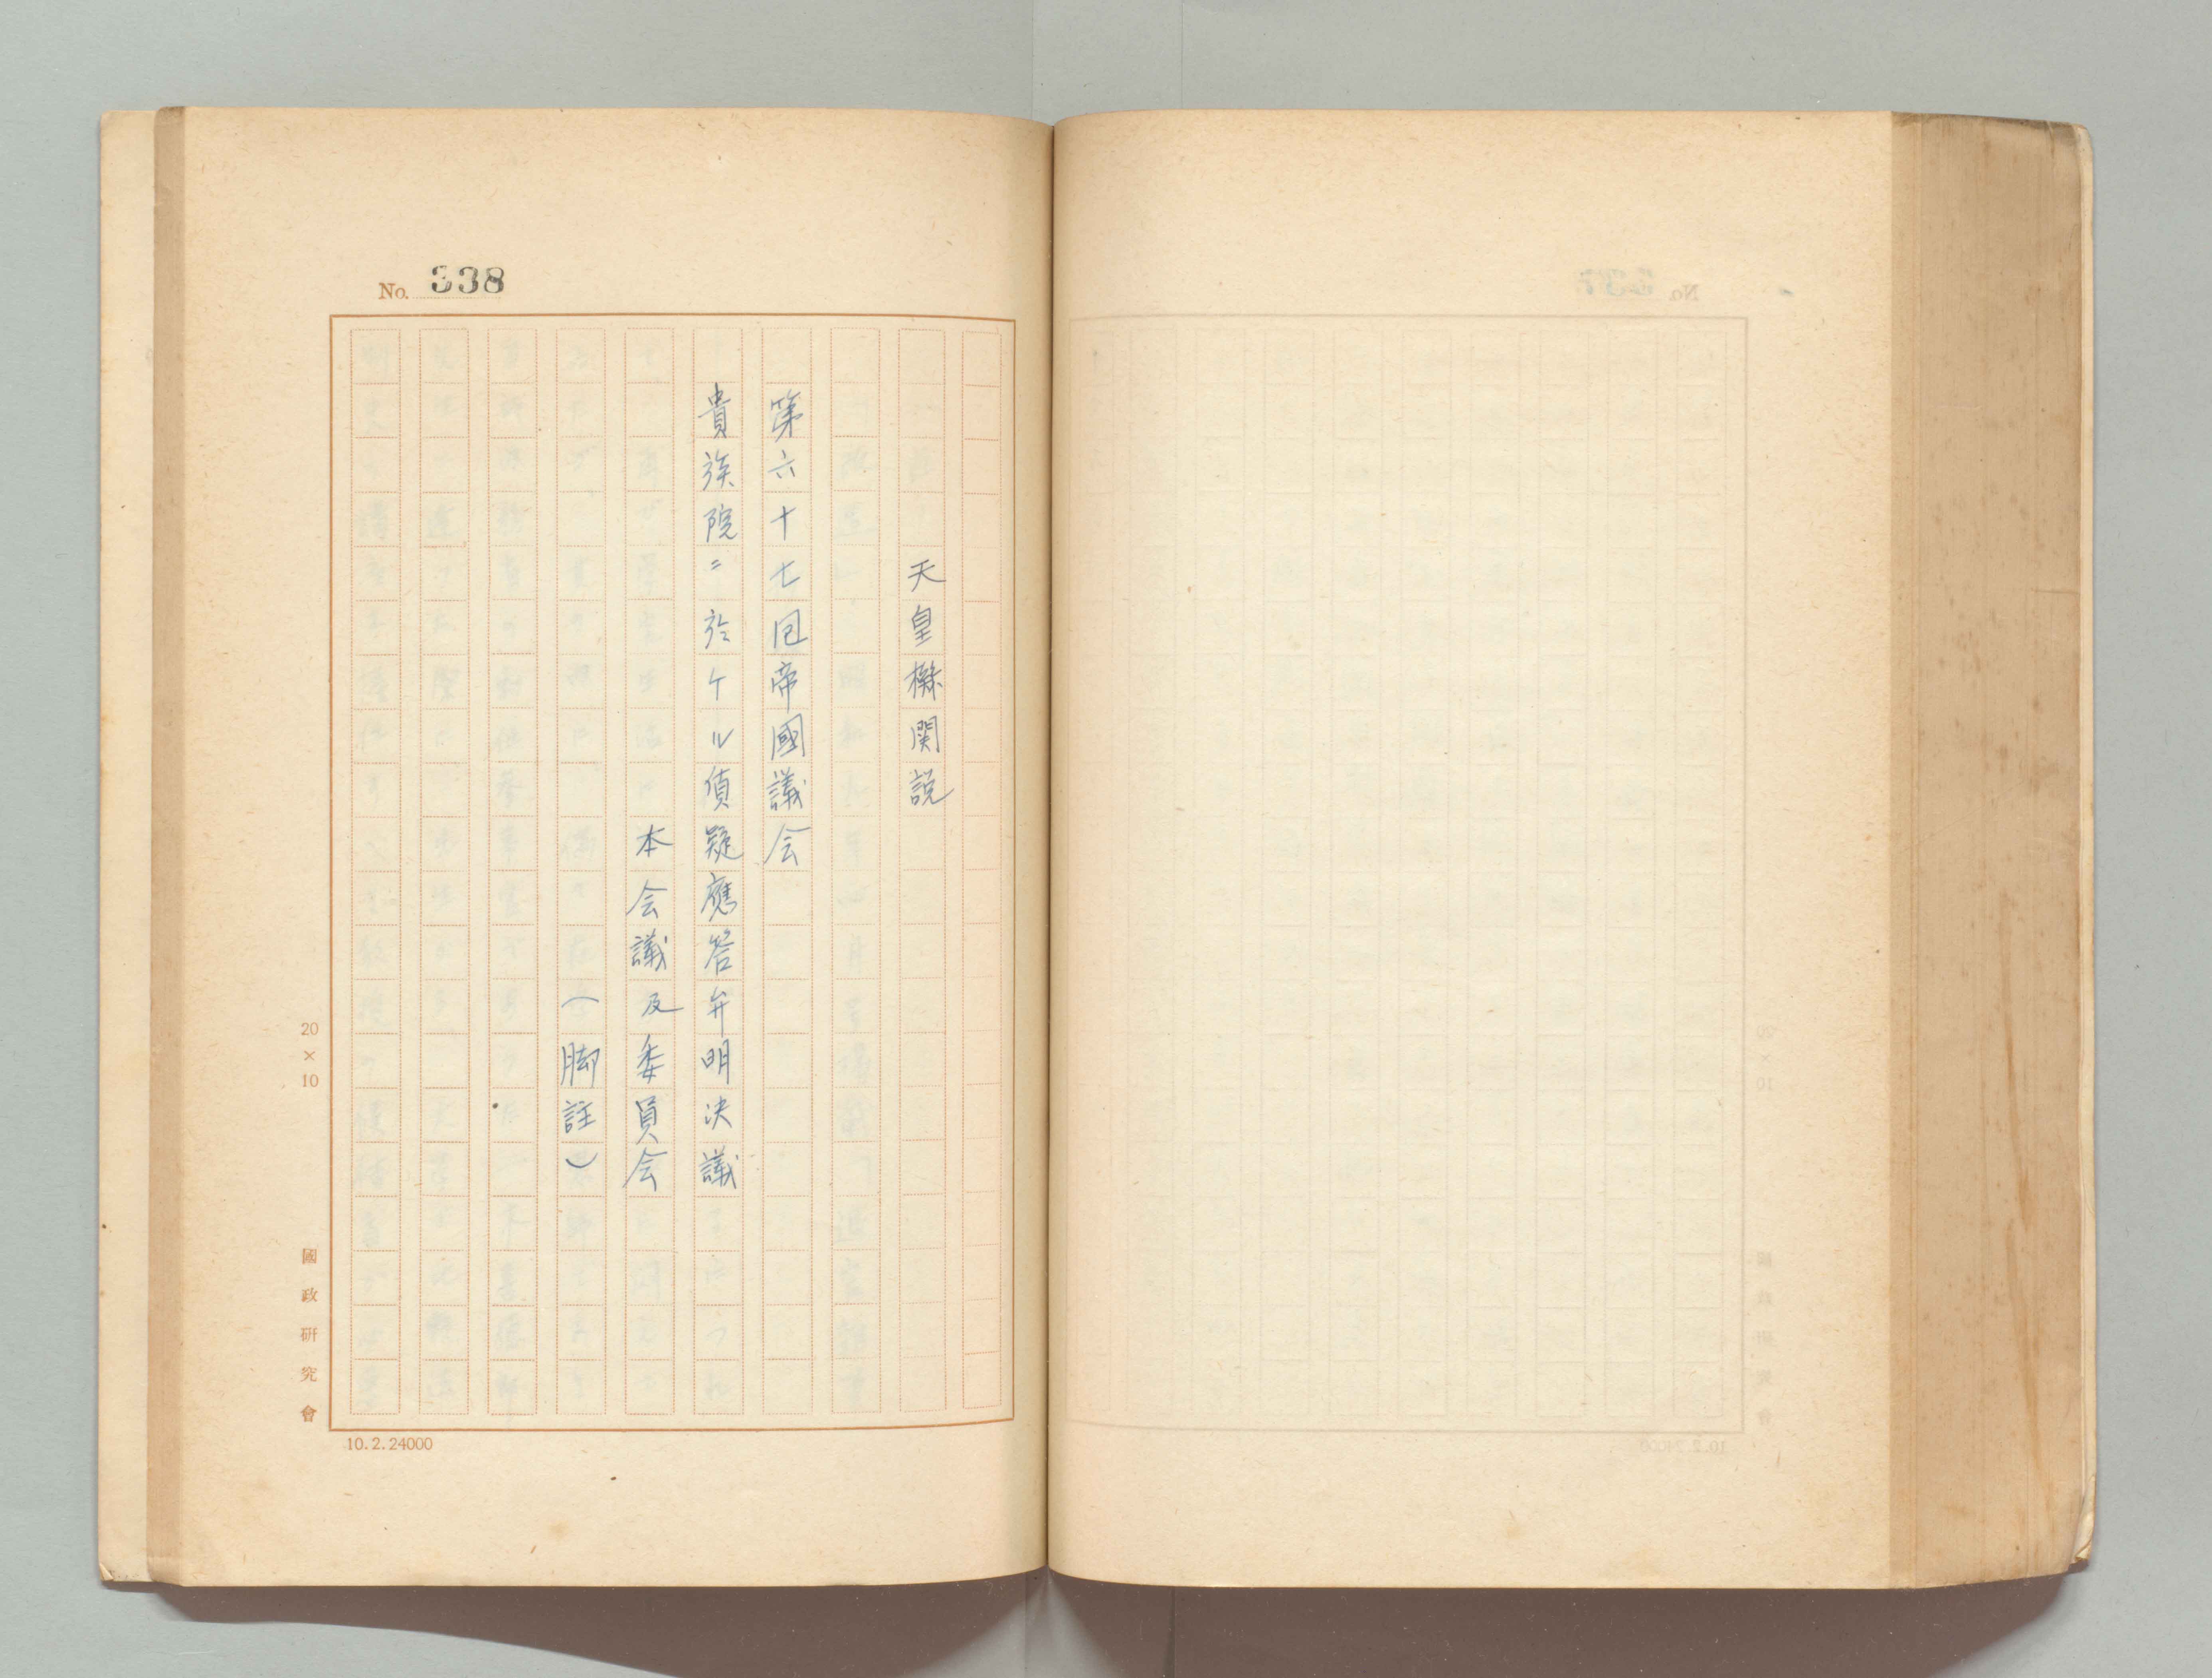 No. 338
天皇機関説
第六十七回帝國議会
貴族院ニ於ケル質疑應答弁明決議
本会議及委員会
（脚註）
20×10
國政研究會
10.2.24000